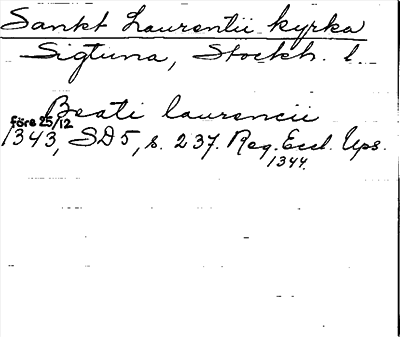 Sankt Laurentii kyrka
Sigtuna, Stockh. l.
Beati laurencii
före 25/12
1343, SD5, s. 237. Reg. Eccl. Ups.
1344.